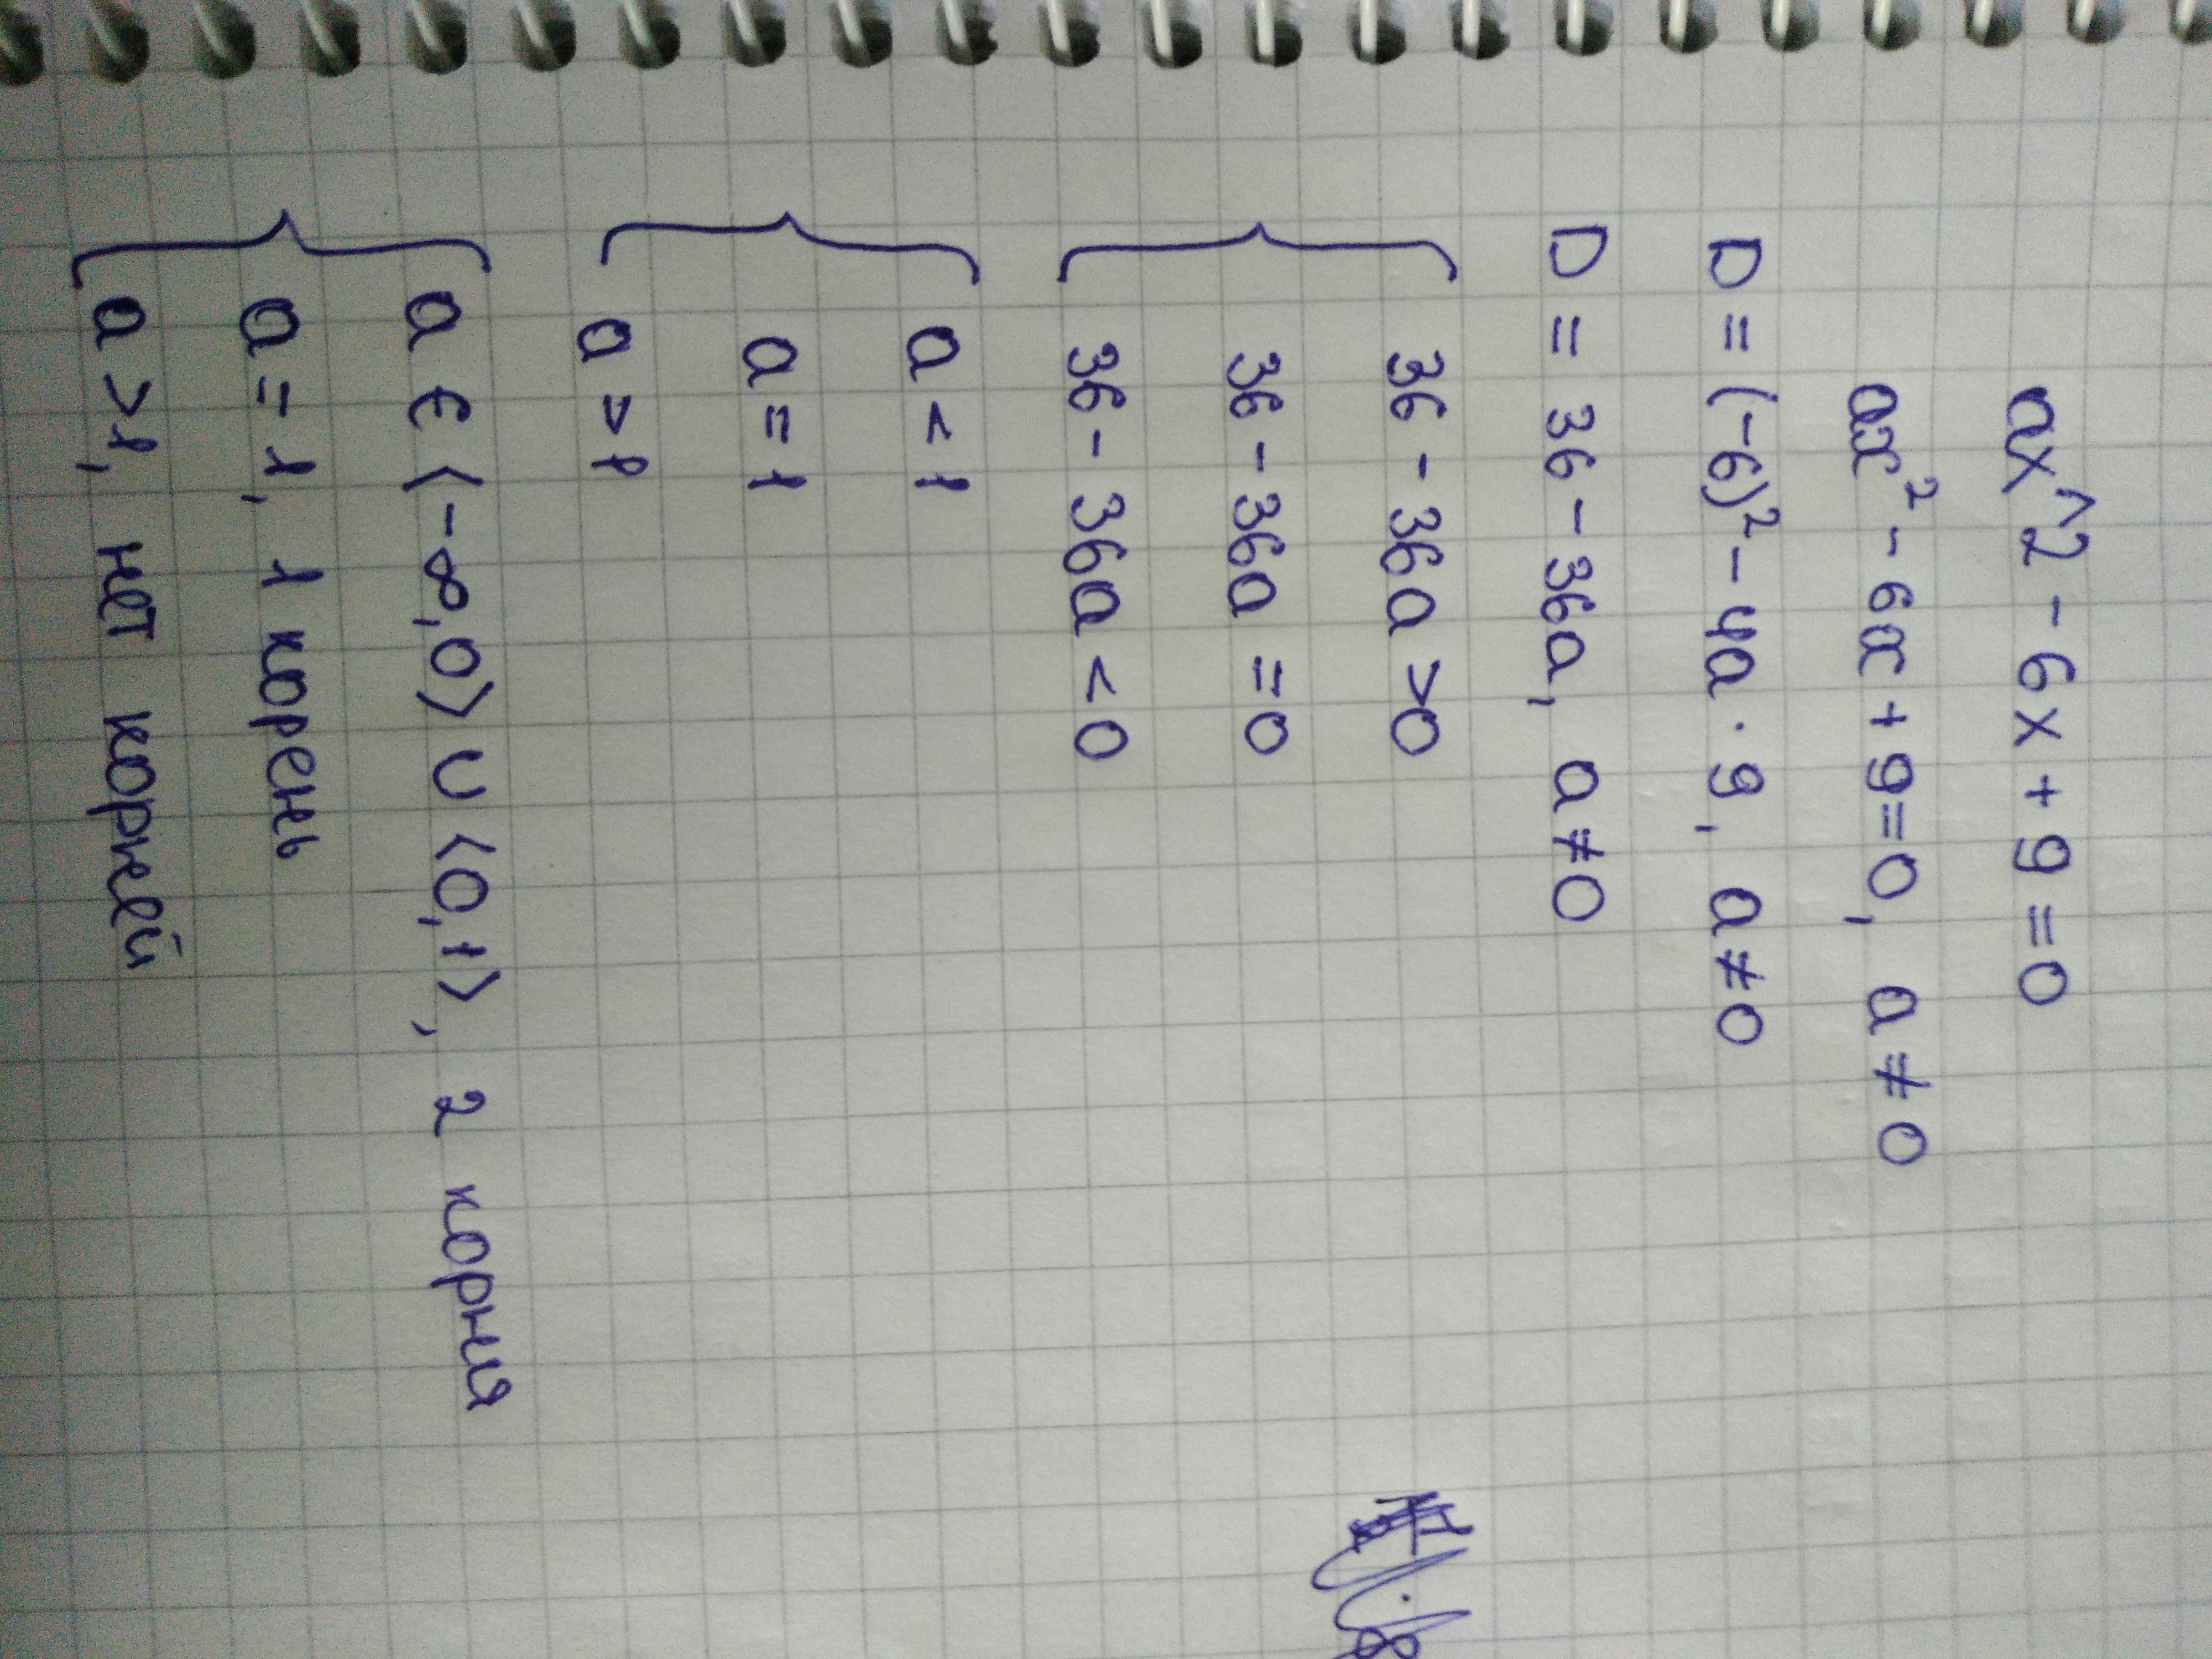 ax^2 - 6x + 9 = 0
ax² - 6x + 9 = 0, a ≠ 0
D = (-6)² - 4a · 9, a ≠ 0
D = 36 - 36a, a ≠ 0
36 - 36a > 0
36 - 36a = 0
36 - 36a < 0
a < 1
a = 1
a > 1
a ∈ ⟨-∞, 0⟩ ∪ ⟨0, 1⟩, 2 корня
a = 1, 1 корень
a > 1, нет корней